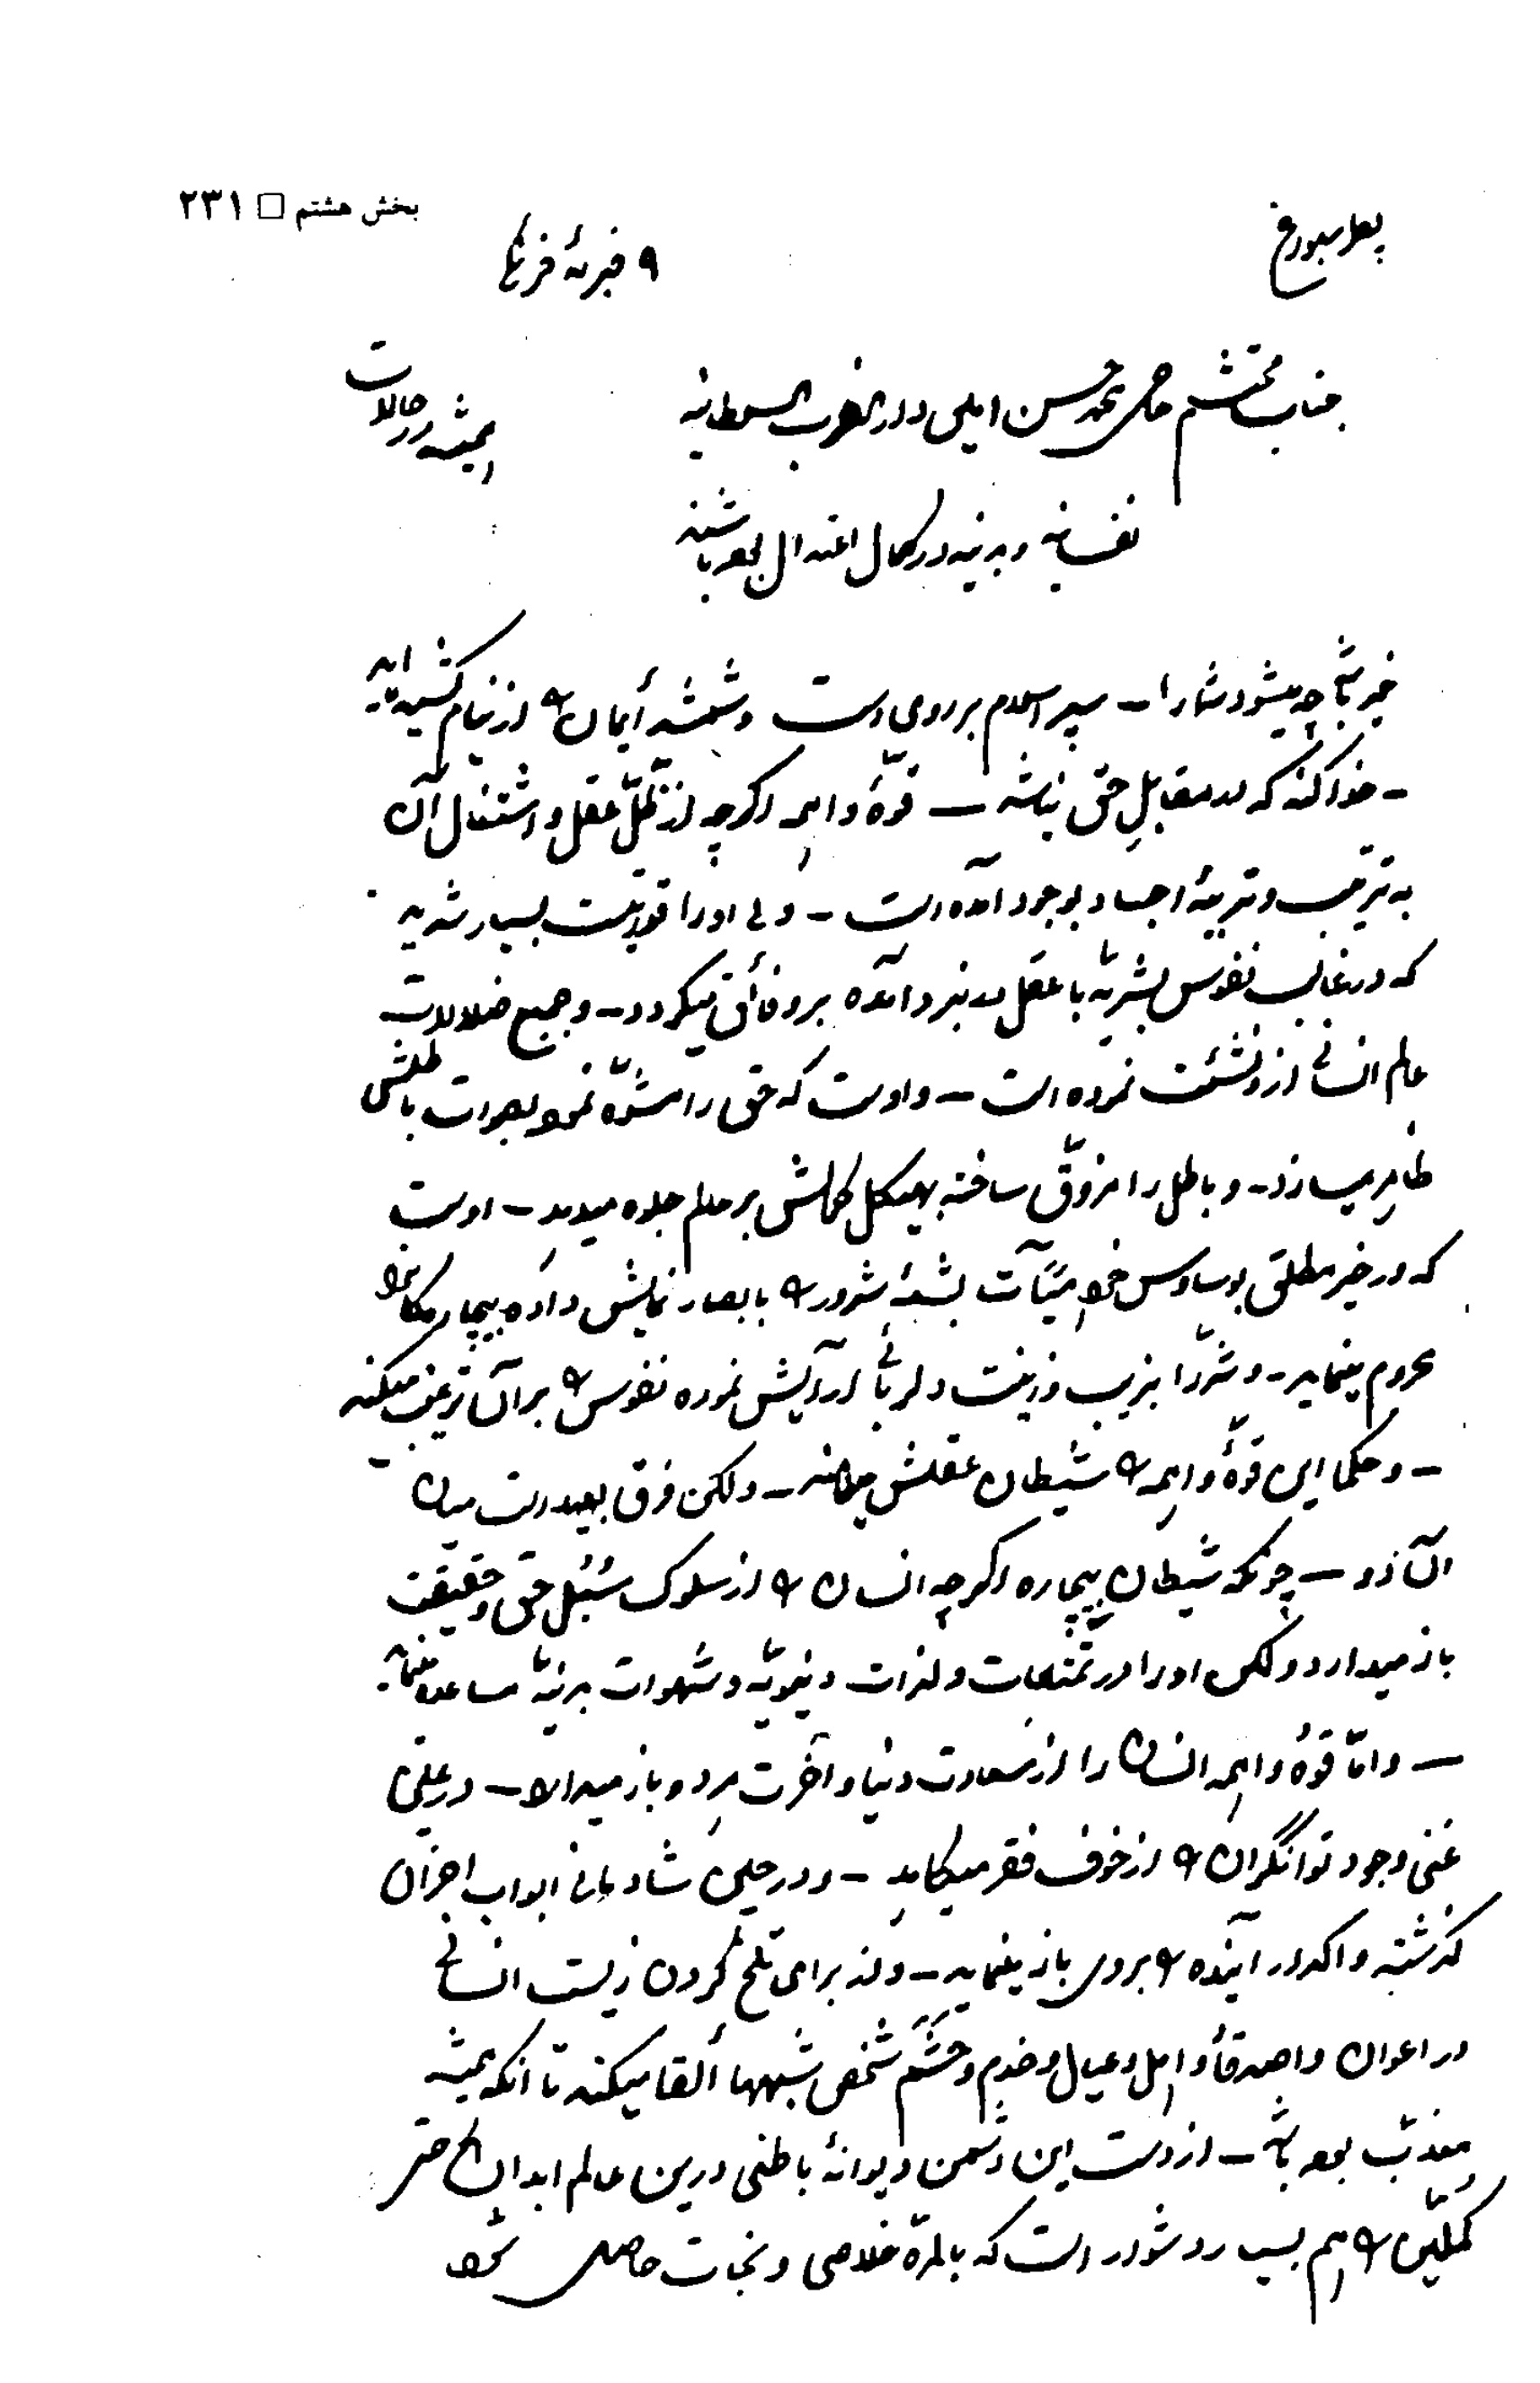 بخش هشتم □ ۲۳۱
پطرسبورغ
۹ فبریهٔ فرنگی
جناب محتشم حاجی محمد حسن امین دارالضرب السلطانیه
همیشه در حالات
نفسانیه و بدنیه در کمال اعتدال بوده باشند
خیر باشد چه میشود شما را - سپر اسلام بر روی است و شمشیر ایمان را از نیام کشیده‌اید
- خدا کند که در مقابل حق نباشد - قوّهٔ واهمه اگرچه از تنزّل عقل و اشتغال آن
به ترتیب و تربیهٔ اجساد بوجود آمده است - ولی او را قوتیست بسیار شدید
که در غالب نفوس بشریّه با عقل در نبرد آمده برو فائق میگردد - و جمیع ضلالات
عالم انسانی ازو نشئت نموده است - و اوست که حق را مشوّه نموده بصورت باطلش
ظاهر میسازد - و باطل را مزوّق ساخته بهیکل کمالش بر عالم جلوه میدهد - اوست
که در خیر مطلق بوساوس خود سیّئآت بشعهٔ شرور را بابصار نمایش داده بیچارگان را
محروم مینماید - و شرّ را بزیب و زینت و لربائی آرایش نموده نفوس را بر آن ترغیب میکند
- و حکما این قوّهٔ واهمه را شیطان عقلش میدانند - ولکن فرق بعید است میان
آن دو - چونکه شیطان بیچاره اگرچه انسان را از سلوک سُبُل حق و حقیقت
باز میدارد ولکن او را در تمتعات و لذات دنیویّه و شهوات بدنیّه مساعده مینماید
- و امّا قوّهٔ واهمه انسان را از سعادت دنیا و آخرت هر دو باز میدارد - در عین
غنی وجود توانگران را از خوف فقر میکاهد - و در حین شادمانی ابواب احزان
گذشته و اکدار آینده را بروی باز مینماید - و از برای تلخ کردن زیست انسانی
در اعوان و اصدقاء و اهل و عیال و خدم و حشم شخص شبهها القا میکند تا آنکه همیشه
معذّب بوده باشد - از دست این دشمن دیوانهٔ باطنی درین عالم ابدان حتی
کمّلین را هم بسیار دشوار است که بالمرّه خلاصی و نجات حاصل شود